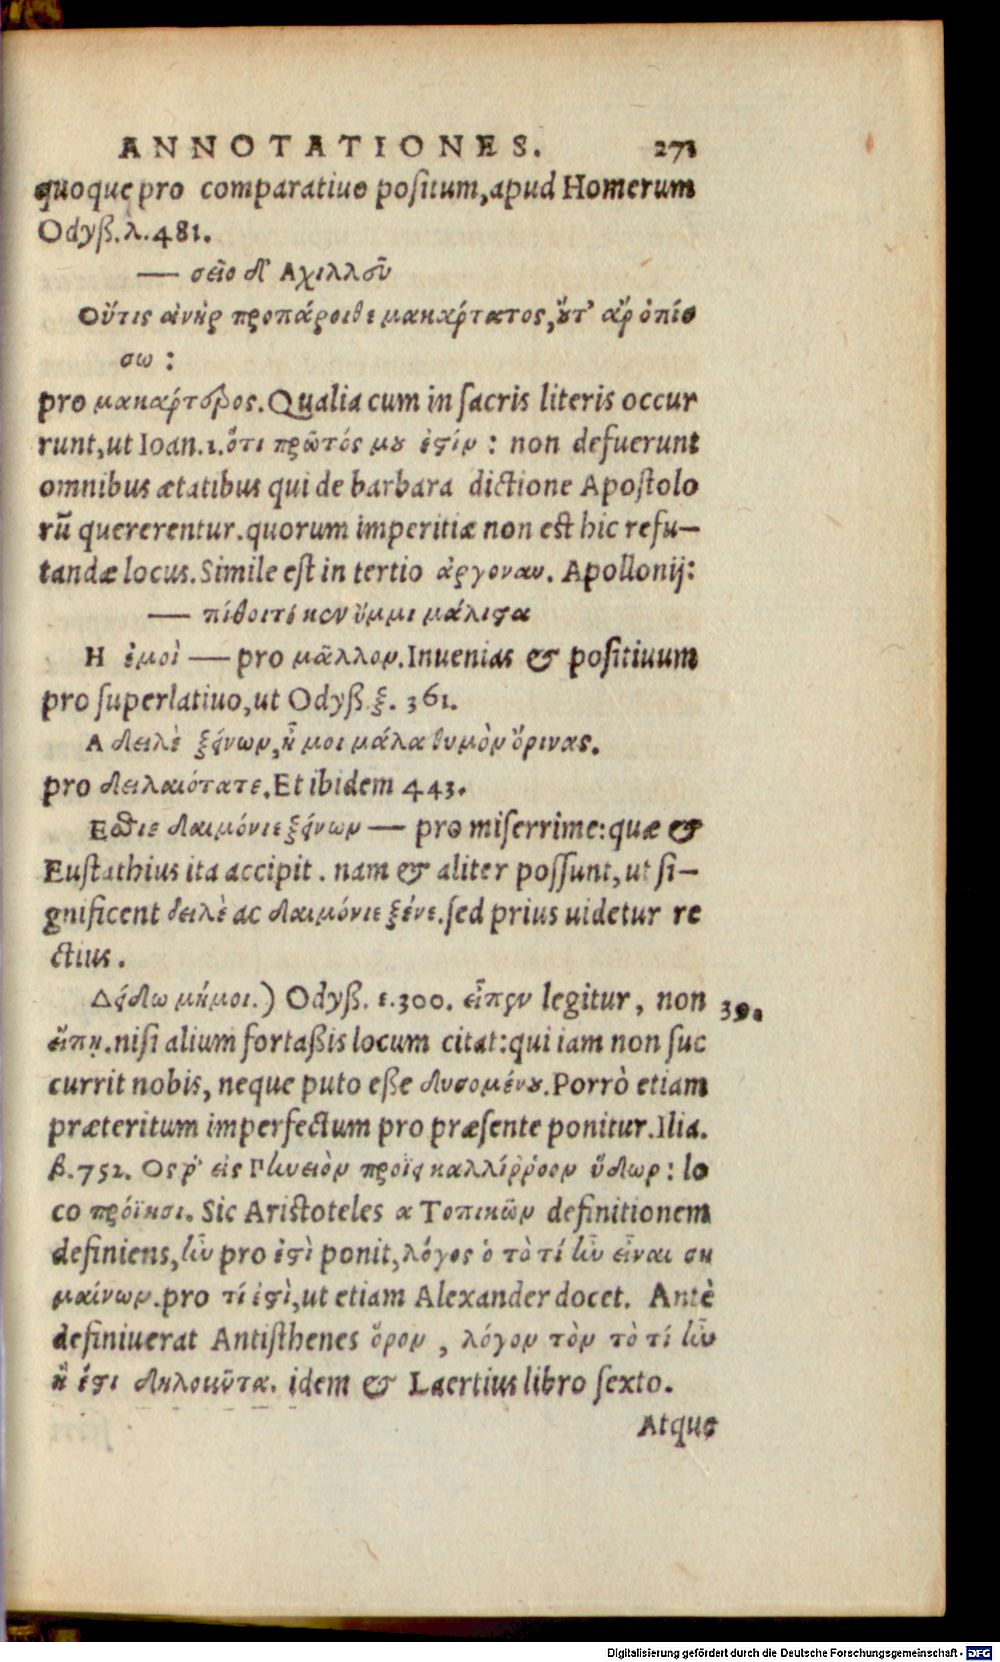 ANNOTATIONES. 271
quoque pro comparatiuo positum, apud Homerum
Odyß. λ. 481.
— σεῖο δ' Αχιλλεῦ
Οὔτις ἀνὴρ προπάροιθε μακάρτατος, οὔτ' ἄρ ὀπίσ
σω :
pro μακάρτερος. Qualia cum in sacris literis occur
runt, ut Ioan. 1. ὅτι πρῶτός μου ἐστίν : non defuerunt
omnibus ætatibus qui de barbara dictione Apostolo
rū quererentur. quorum imperitiæ non est hic refu-
tandæ locus. Simile est in tertio ἀργοναυ. Apollonij:
— πίθοιτό κεν ὔμμι μάλιστα
Η ἐμοὶ — pro μᾶλλον. Inuenias & positiuum
pro superlatiuo, ut Odyß. ξ. 361.
Α δειλὲ ξείνων, ἦ μοι μάλα θυμὸν ὄρινας.
pro δειλαιότατε. Et ibidem 443.
Εσθιε δαιμόνιε ξείνων — pro miserrime: quæ &
Eustathius ita accipit. nam & aliter possunt, ut si-
gnificent δειλὲ ac δαιμόνιε ξένε. sed prius uidetur re
ctius.
Δείδω μήμοι.) Odyß. ε. 300. εἶπεν legitur, non 39.
εἴπῃ. nisi alium fortaßis locum citat: qui iam non suc
currit nobis, neque puto eße δυσομένου. Porrò etiam
præteritum imperfectum pro præsente ponitur. Ilia.
β. 752. Ος ῥ' εἰς Πηνειὸν προΐει καλλίρῥοον ὕδωρ : lo
co πρόϊησι. Sic Aristoteles α Τοπικῶν definitionem
definiens, ἦν pro ἐστὶ ponit, λόγος ὁ τὸ τί ἦν εἶναι ση
μαίνων. pro τί ἐστὶ, ut etiam Alexander docet. Antè
definiuerat Antisthenes ὅρον , λόγον τὸν τὸ τί ἦν
ἢ ἔστι δηλοῦντα. idem & Laertius libro sexto.
Atque
Digitalisierung gefördert durch die Deutsche Forschungsgemeinschaft - DFG